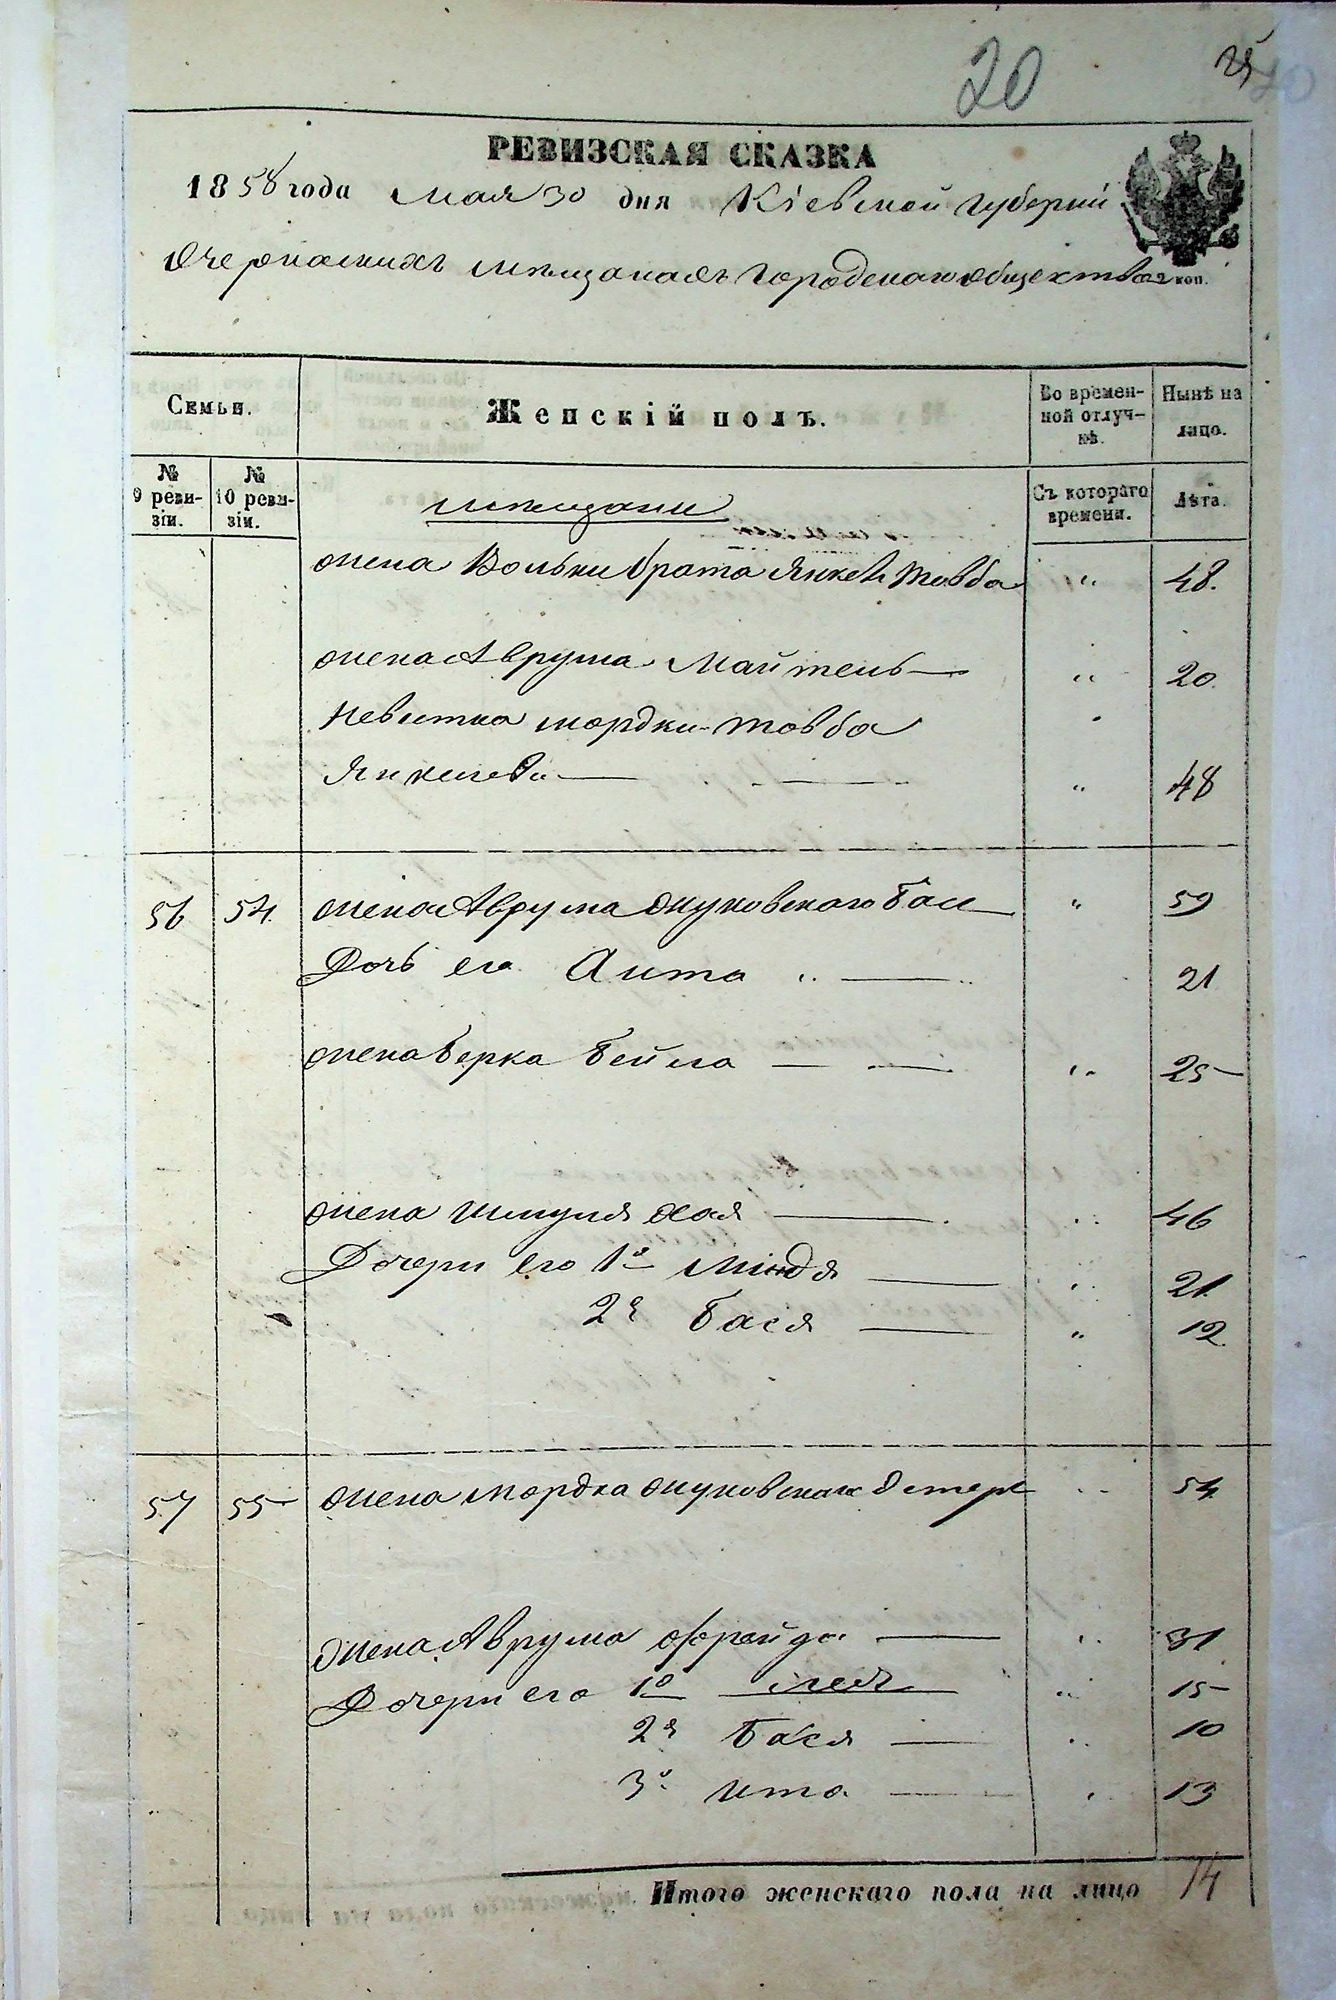 20
25
РЕВИЗСКАЯ СКАЗКА
1858 года мая 30 дня Кіевской губерніи
Очеркаскихъ мѣщанахъ городскаго общества
2 коп.
Семьи.
Женскій полъ.
Во времен-
ной отлуч-
кѣ.
Нынѣ на
лицо.
№
9 реви-
зіи.
№
10 реви-
зіи.
Съ котораго
времени.
Лѣта.
мѣщани
жена Вольки брата Янкеля Товба " 48.
жена Аврума Майтель " 20.
невѣстка мордки Товба
Янкелева " 48
56 54. жена Аврума Окуковскаго Бася " 59
Дочь его Аита 21
жена Берка Бейла " 25
жена Шмуля Хая " 46
Дочери его 1я Миндя " 21.
2я Бася " 12.
57 55 жена мордка Окуковскаго Эстеръ " 54.
жена Аврума Фрейда " 31
Дочери его 1я " 15
2я Бася " 10
3я Ита " 13
Итого женскаго пола на лицо 14